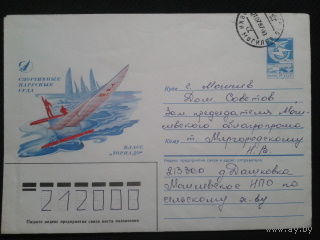 СПОРТИВНЫЕ
ПАРУСНЫЕ
СУДА
КЛАСС
„ТОРНАДО"
Куда г. Могилев
Дом Советов
Зам. председателя Моги-
левского облагропрома
Кому т. Миргородскому
Н.В.
Индекс предприятия связи и адрес отправителя
213300 д Дашковка
Могилевское НПО по
сельскому х-ву
212000
Пишите индекс предприятия связи места назначения
ay.by